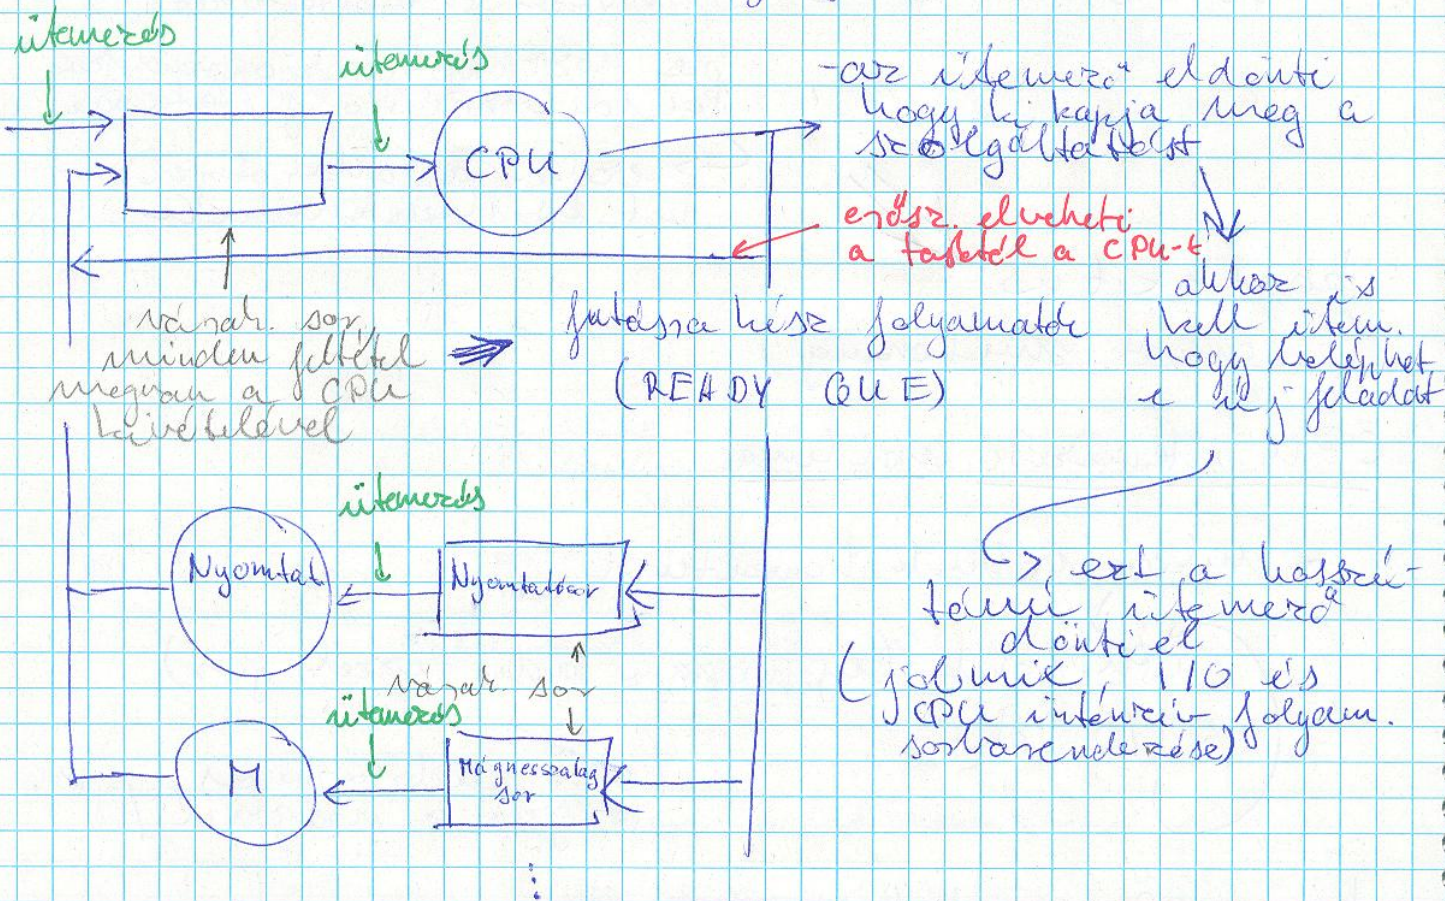 ütemezés
ütemezés
CPU
-az ütemező eldönti
hogy ki kapja meg a
szolgáltatást
erősz. elveheti
a tasktól a CPU-t
akkor is
kell ütem.
hogy beléphet
e új feladat
várak. sor,
minden feltétel
megvan a CPU
kivételével
futásra kész folyamatok
(READY QUE)
ütemezés
Nyomtat.
Nyomtatósor
várak. sor
ütemezés
M
Mágnesszalag
sor
ezt a hosszú-
távú ütemező
dönti el
(jobmix, I/O és
CPU intenzív folyam.
sorbarendezése)